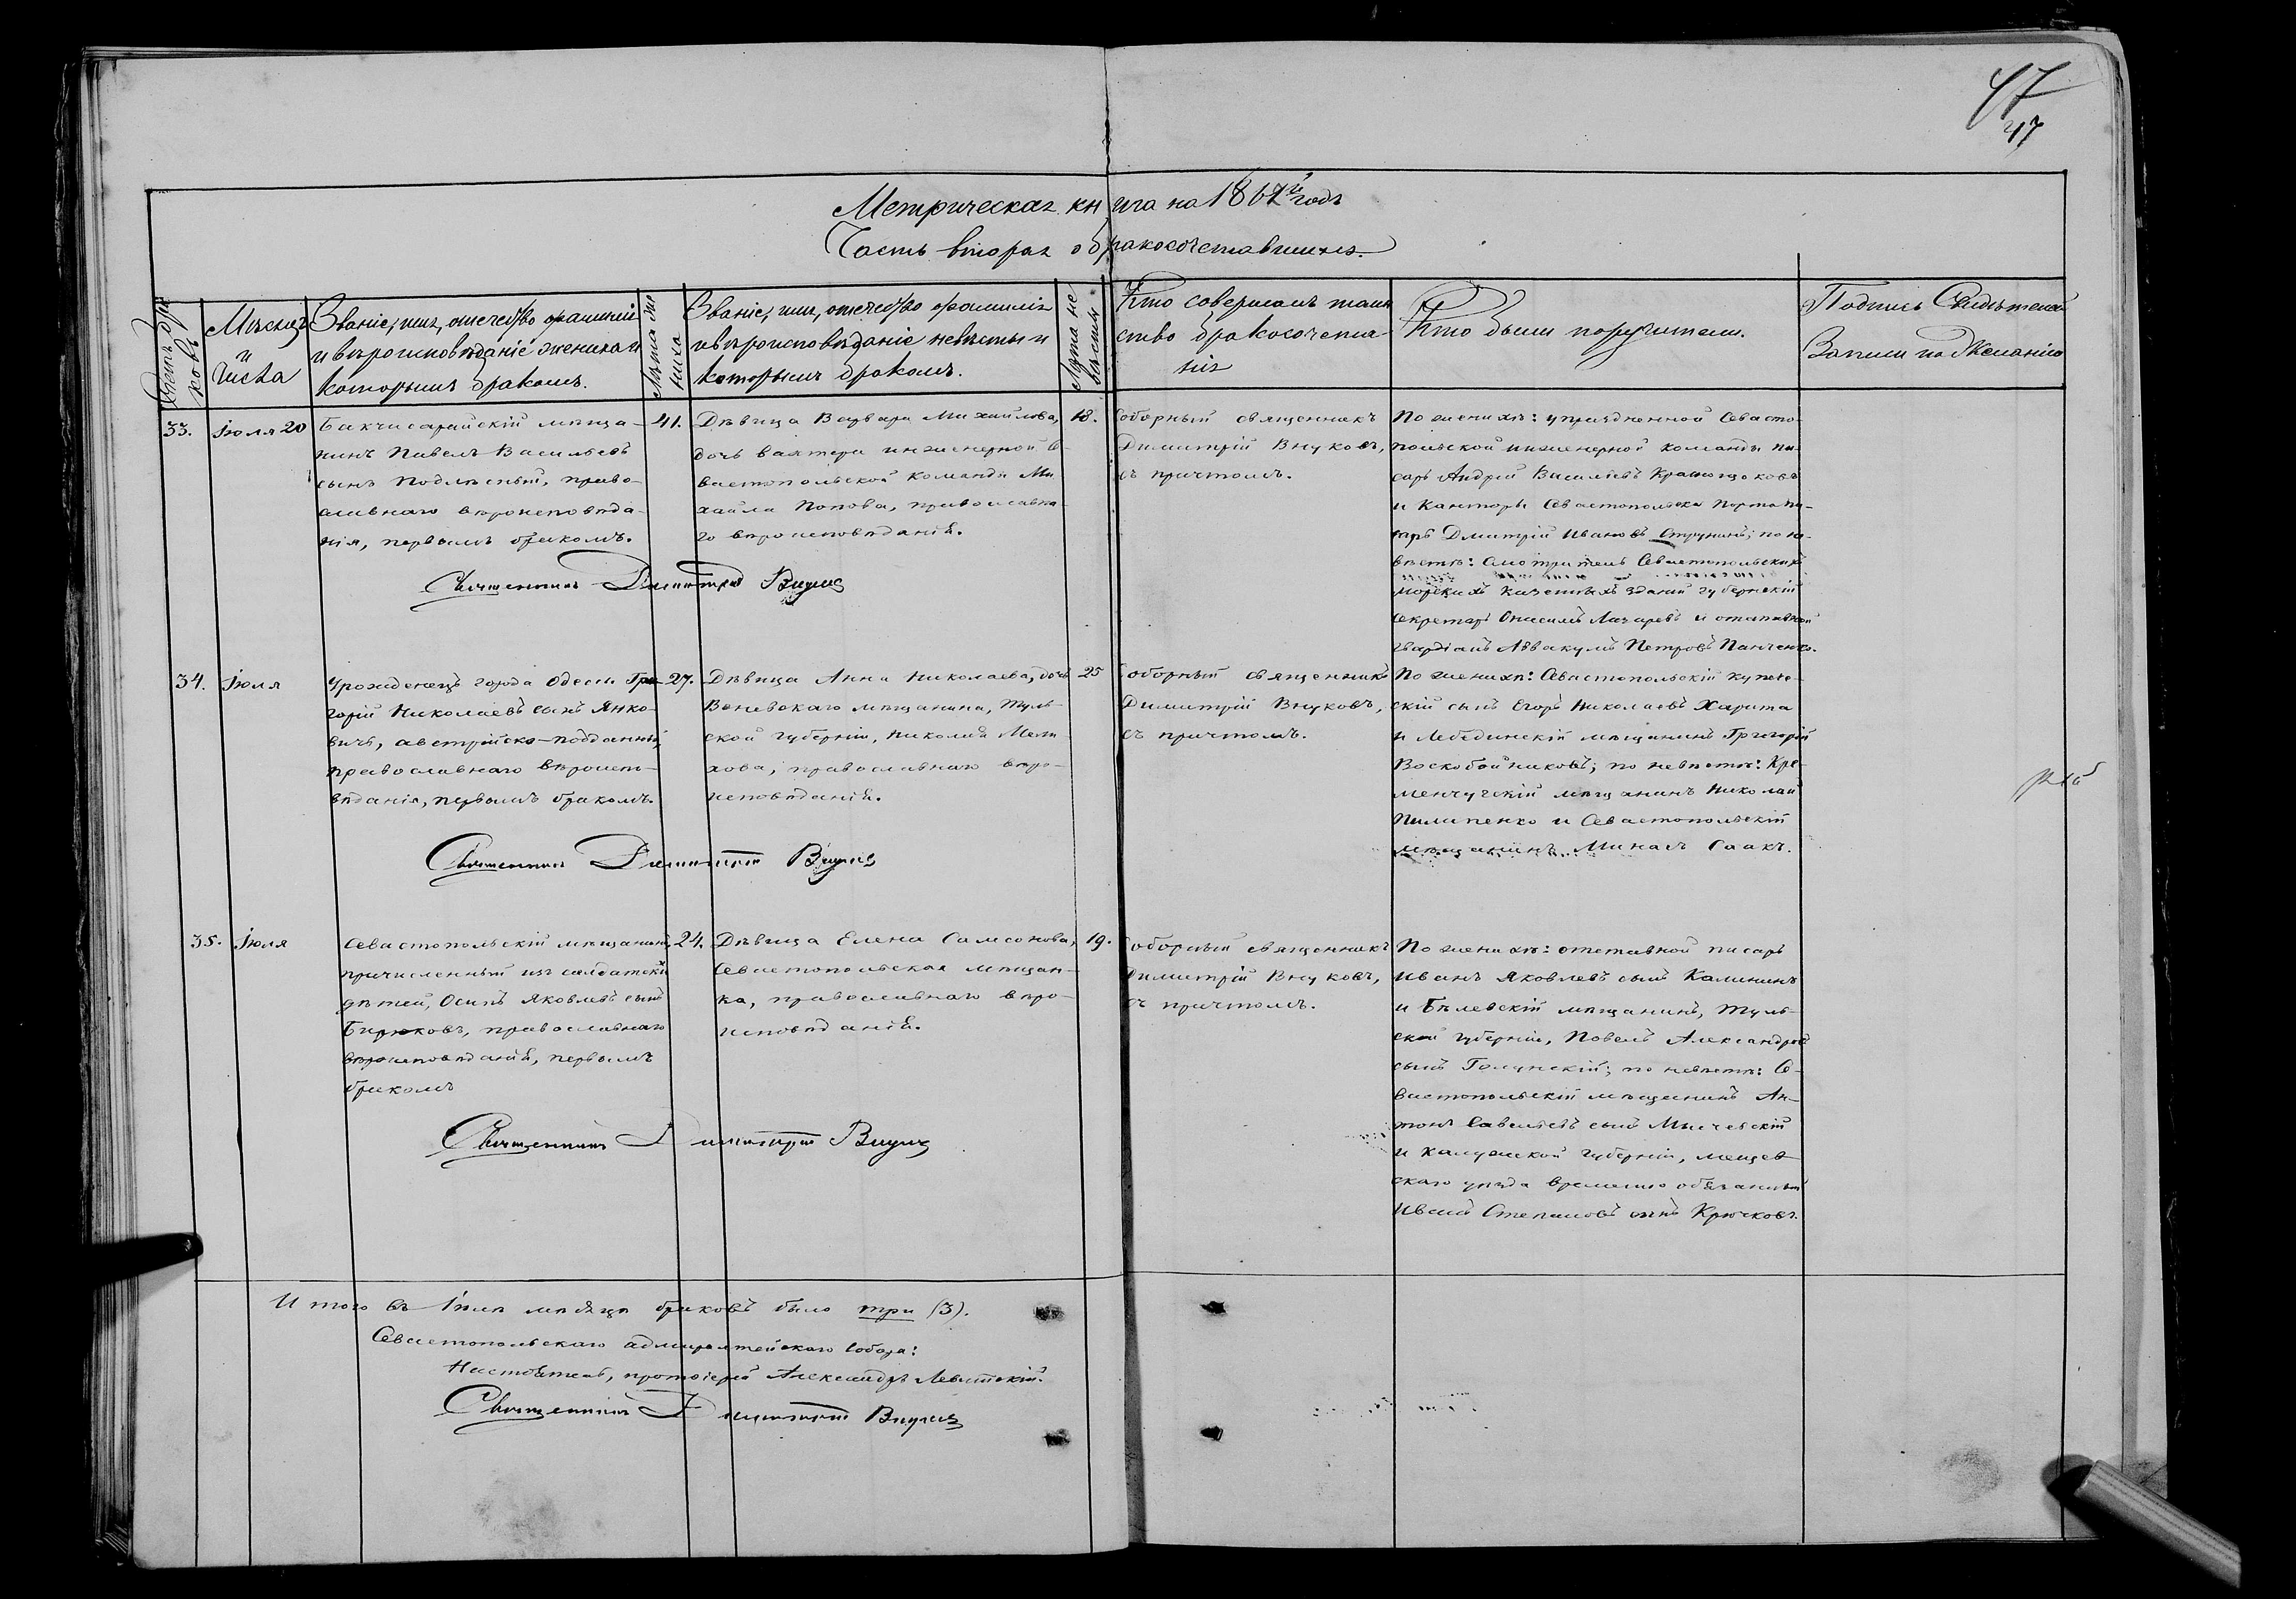 47
47
Метрическая книга на 1867й годъ
Часть вторая о бракосочетавшихся.
Счетъ бра
ковъ
Мѣсяцъ
и
числа
Званіе, имя, отечество фамилія
и вѣроисповѣданіе жениха и
которымъ бракомъ.
Лѣта же
ниха
Званіе, имя, отечество фамилія
и вѣроисповѣданіе невѣсты и
которымъ бракомъ.
Лѣта не
вѣсты
Кто совершалъ таин
ство бракосочета
нія
Кто были поручители.
Подпись Свидѣтелей
Записи по Желанію
33.
Іюля 20
Бакчисарайскій мѣща-
нинъ Павелъ Васильевъ
сынъ Подлѣсный, право-
славнаго вѣроисповѣда-
нія, первымъ бракомъ.
41.
Дѣвица Варвара Михайлова,
дочь вахтера инженерной Се-
вастопольской команды Ми-
хаила Попова, православна-
го вѣроисповѣданія.
18.
Соборный священникъ
Димитрій Внуковъ,
съ причтомъ.
По женихѣ: упраздненной Севасто-
польской инженерной команды пи-
сарь Андрей Васильевъ
и Канторы Севастопольска Порта пи-
сарь Дмитрій Ивановъ Струнинъ; по не-
вѣстѣ: Смотритель Севастопольскихъ
морскихъ казенныхъ зданій губернскій
секретарь Онисимъ Лазаревъ и отставной
Аввакумъ Петровъ Панченко.
Священникъ Димитрій Внуковъ
34.
Іюля
Уроженецъ города Одессы Гри-
горій Николаевъ сынъ Янко-
вичъ, австрійско-подданный,
православнаго вѣроиспо-
вѣданія, первымъ бракомъ.
27.
Дѣвица Анна Николаева, дочь
Веневскаго мѣщанина, Туль-
ской губерніи, Николая
православнаго вѣро-
исповѣданія.
25
Соборный священникъ
Димитрій Внуковъ,
съ причтомъ.
По женихѣ: Севастопольскій купече-
скій сынъ Егоръ Николаевъ Харита
и Лебединскій мѣщанинъ Григорій
Воскобойниковъ; по невѣстѣ: Кре-
менчугскій мѣщанинъ Николай
Пилипенко и Севастопольскій
мѣщанинъ Минасъ Саакъ.
Священникъ Димитрій Внуковъ
35.
Іюля
Севастопольскій мѣщанинъ,
причисленный изъ солдатскихъ
дѣтей, Осипъ Яковлевъ сынъ
Бирюковъ, православнаго
вѣроисповѣданія, первымъ
бракомъ
24.
Дѣвица Елена Самсонова,
Севастопольская мѣщан-
ка, православнаго вѣро-
исповѣданія.
19.
Соборный священникъ
Димитрій Внуковъ,
съ причтомъ.
По женихѣ: отставной писарь
Иванъ Яковлевъ сынъ Калининъ
и Бѣлевскій мѣщанинъ, Туль-
ской губерніи, Павелъ Александровъ
сынъ Голунскій; по невѣстѣ: Се-
вастопольскій мѣщанинъ Ан-
тонъ Савельевъ сынъ
и Калужской губерніи, Мещев-
скаго уѣзда временно обязанный
Иванъ Степановъ сынъ Крючковъ.
Священникъ Димитрій Внуковъ
Итого въ Іюлѣ мѣсяцѣ браковъ было три (3).
Севастопольскаго адмиралтейскаго собора:
Настоятель, протоіерей Александръ Левитскій.
Священникъ Димитрій Внуковъ